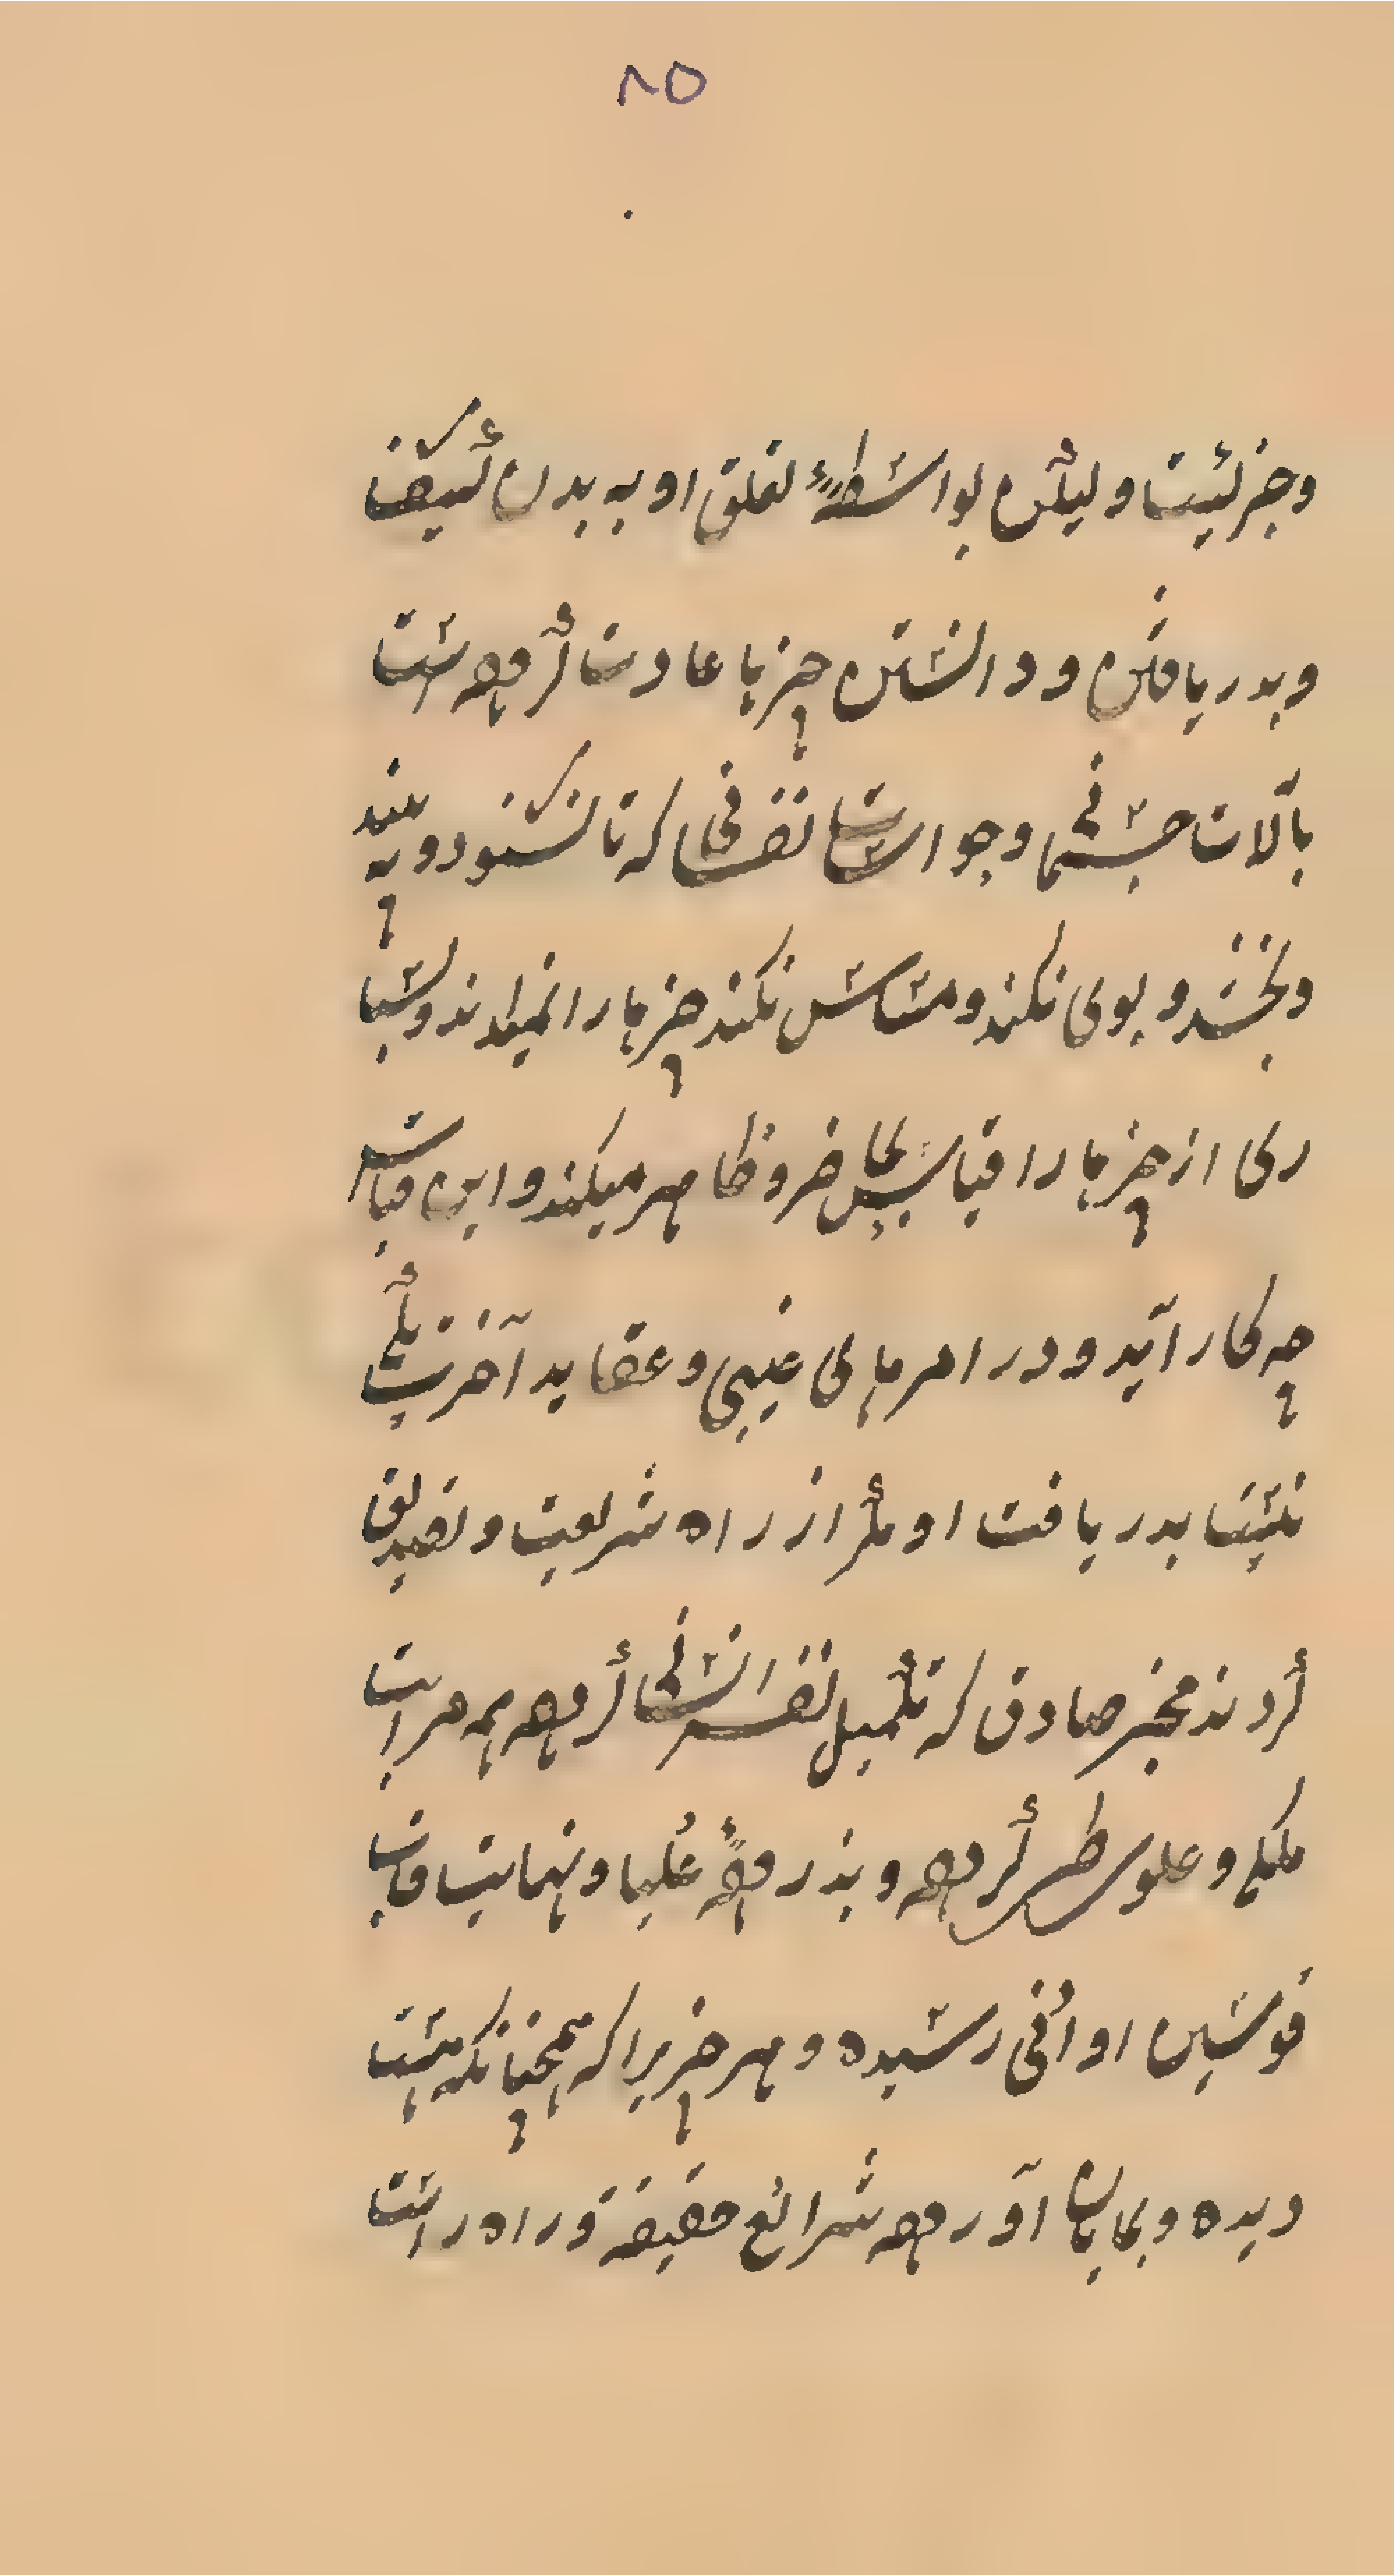 ۸۵
وجزئیت ولیکن بواسطهٔ تعلق او به بدن کثیف
و بدریافتن و دانستن چیزها عادت کرده است
بآلات جسمانی و حواس نفسانی که تا نشنود و نه بیند
و نچشد و بوی نکند و مساس نکند چیزها را نمیداند و بسیا
ری از چیزها را قیاس بحاضر و ظاهر میکند و این قیاس
چه کار آید و در امرهای غیبی و عقاید آخرت تکیه
نیست بدریافت او مگر از راه شریعت و تصدیق
کردند مخبر صادق که تکمیل نفس انسانی کرده همه مراتب
ملکی و علوی طی کرده و بذروهٔ علیا و نهایت قاب
قوسین او ادنی رسیده و هر چیزیرا که همچنانکه هست
دیده و بما بیان آورده شرائع حقیقه و راه راست